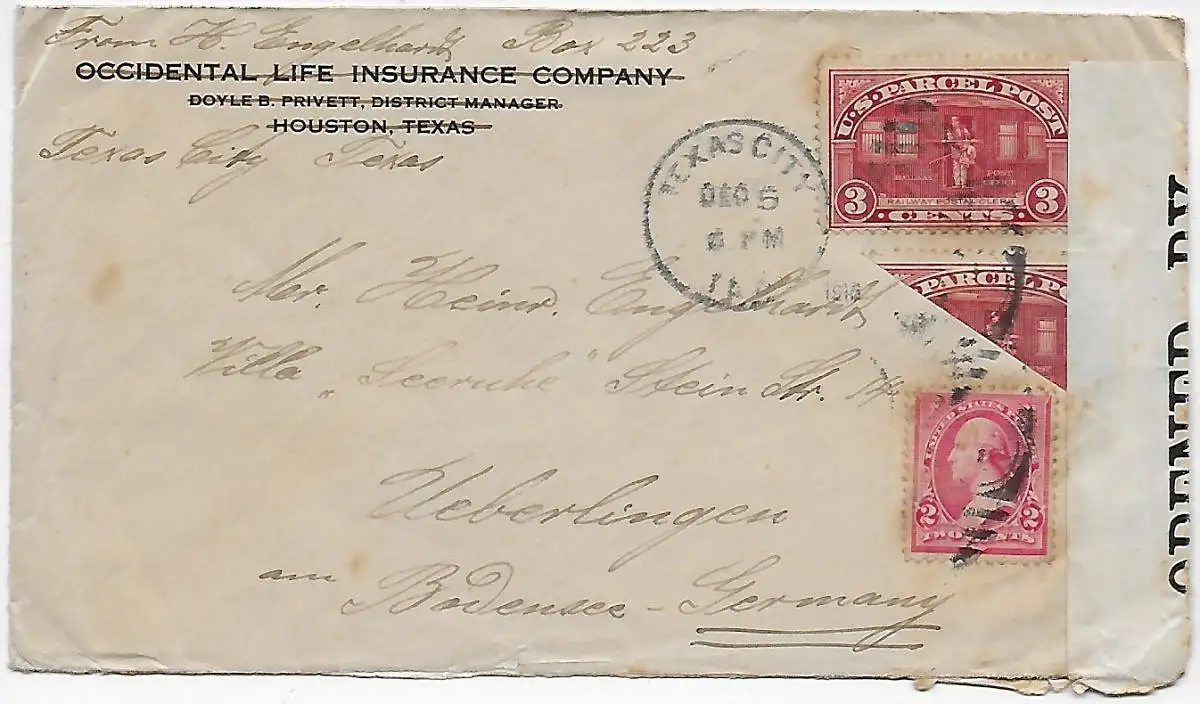 From H. Engelhardt Box 223
OCCIDENTAL LIFE INSURANCE COMPANY
DOYLE B. PRIVETT, DISTRICT MANAGER
HOUSTON, TEXAS
Texas City Texas
TEXAS CITY
DEC 5
PM
U.S. PARCEL POST
RAILWAY POST OFFICE
RAILWAY POSTAL CLERK
3 CENTS 3
PARCEL PO
Mr. Heinr. Engelhardt
Villa „Seeruhe" Stein Str. 14
UNITED STATES
2 2
TWO CENTS
Ueberlingen
am Bodensee - Germany
OPENED BY